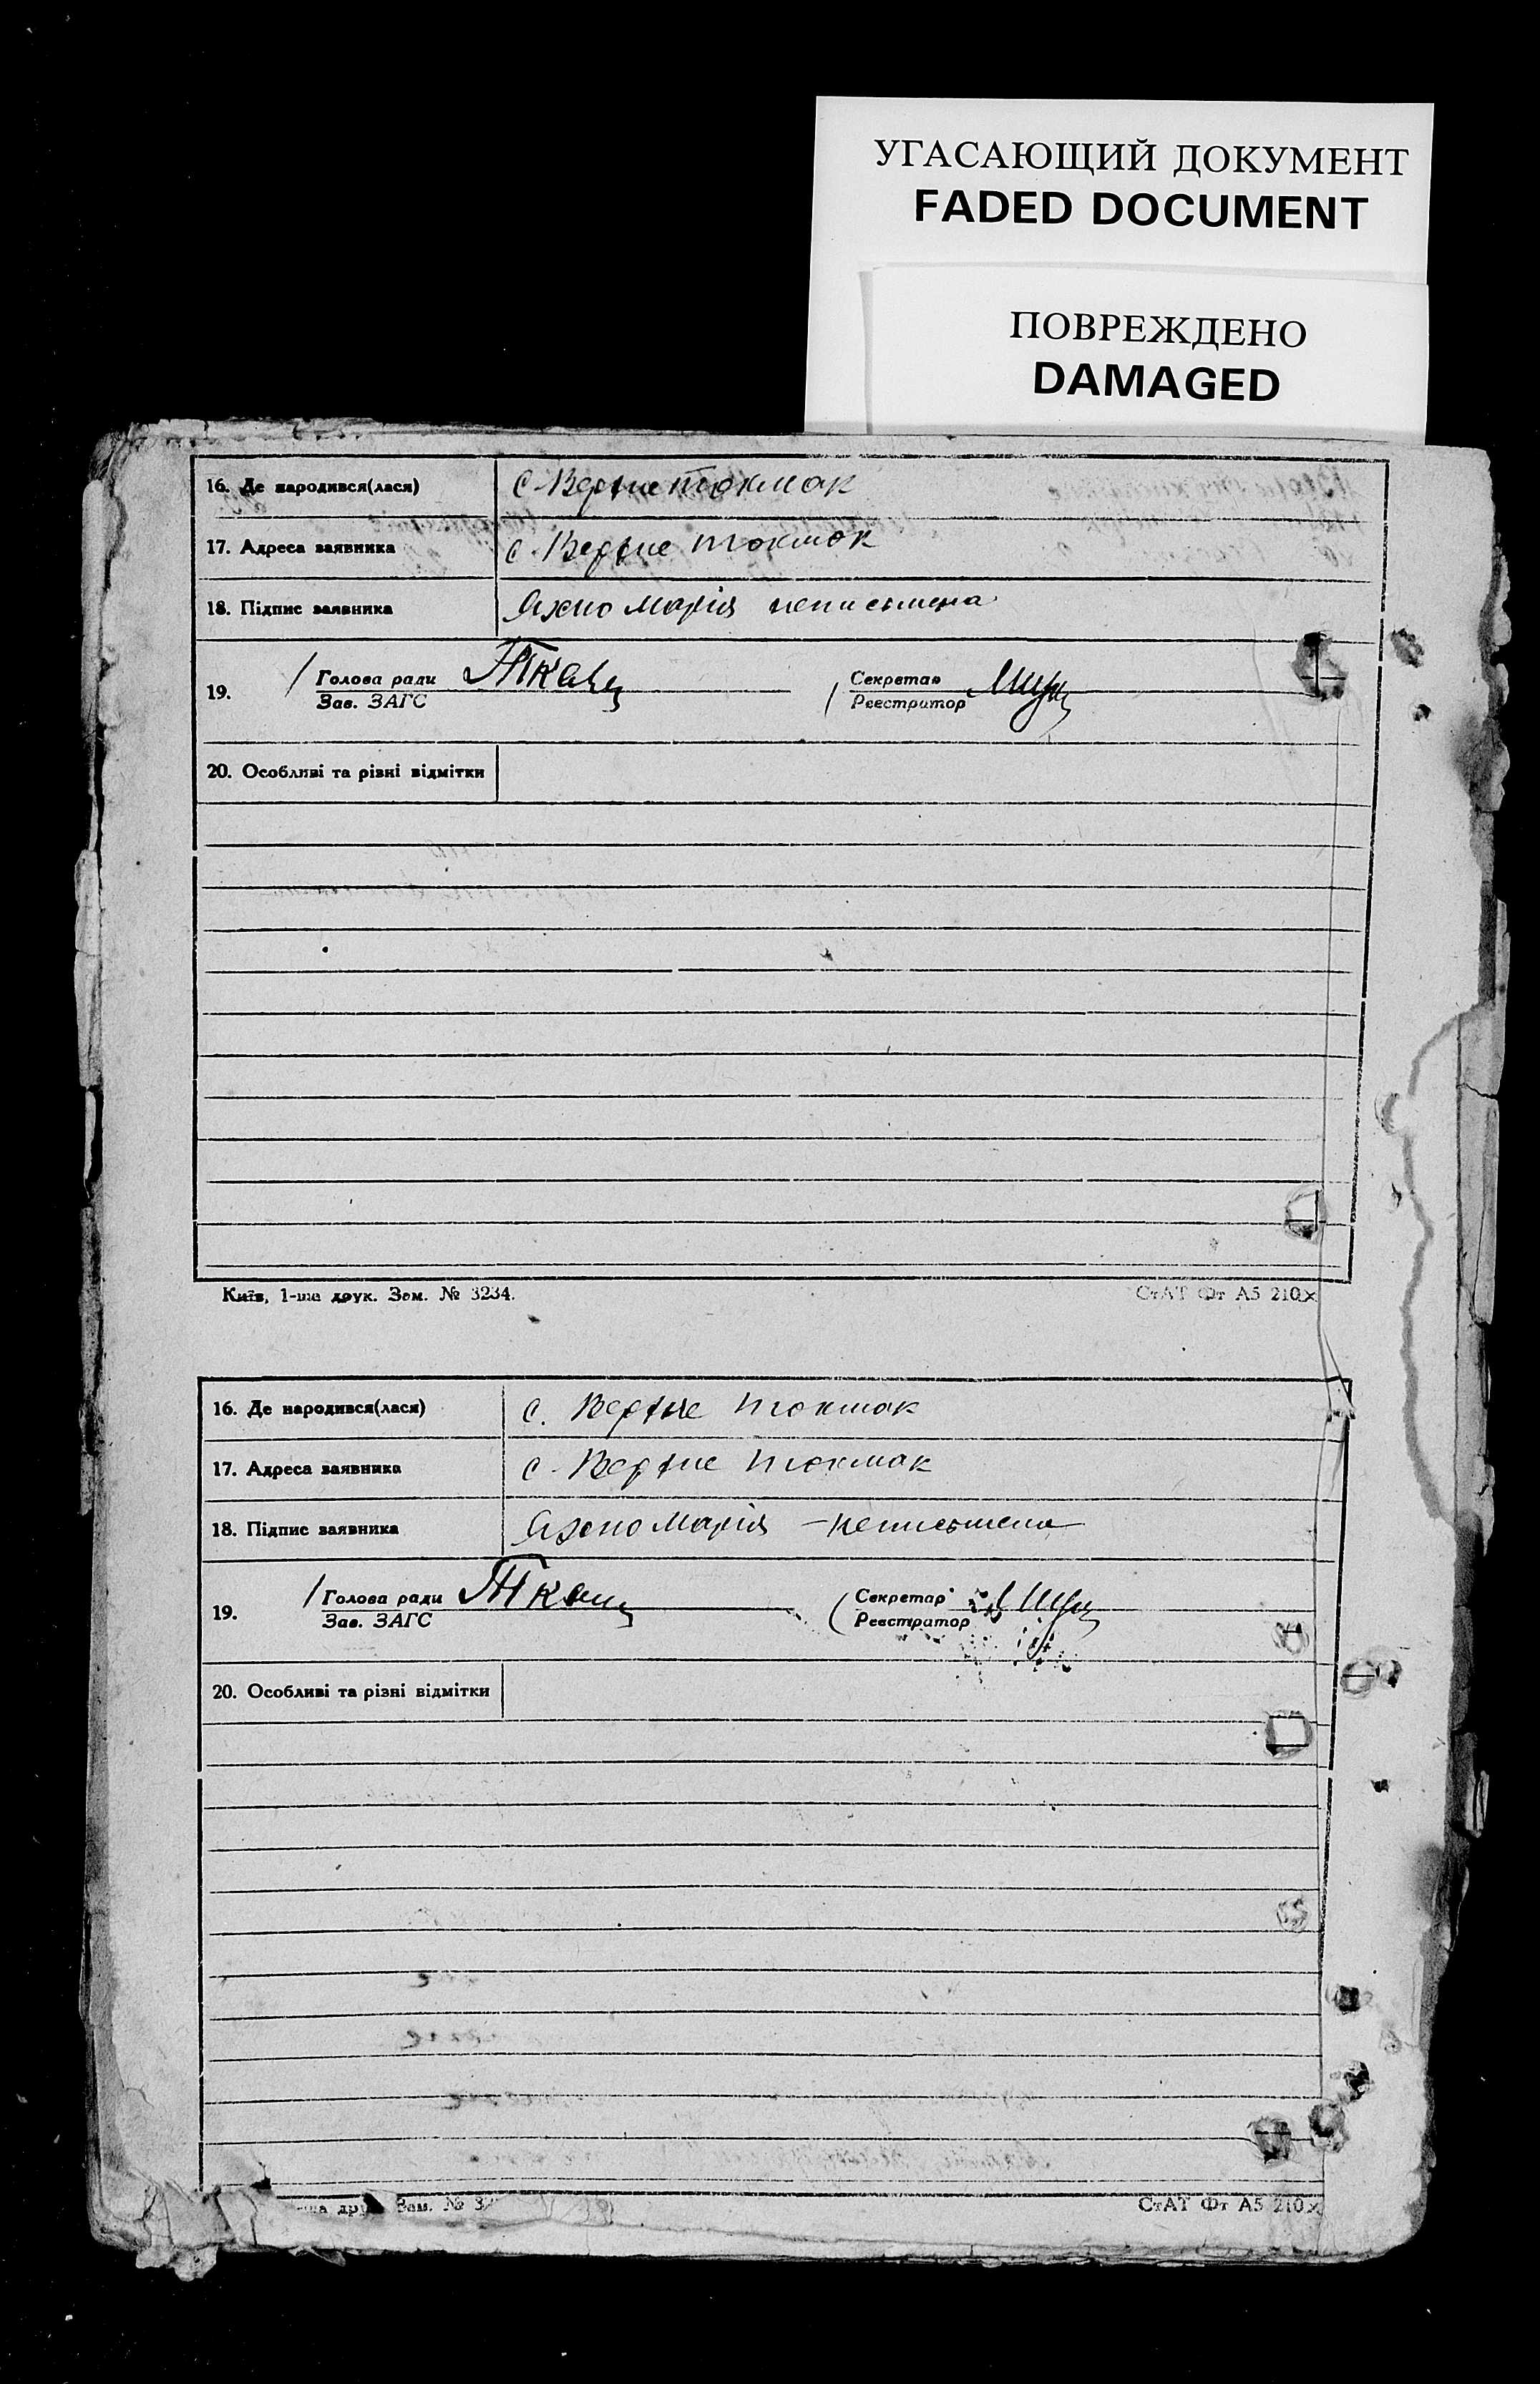 УГАСАЮЩИЙ ДОКУМЕНТ
FADED DOCUMENT
ПОВРЕЖДЕНО
DAMAGED
16. Де народився(лася) с. Верхне Токмак
17. Адреса заявника с. Верхне Токмак
18. Підпис заявника Яхно Марія неписьмена
19. Голова ради Секретар
Зав. ЗАГС Реєстратор
20. Особливі та різні відмітки
Київ, 1-ша друк. Зам. № 3234. СтАТ Фт А5 210×
16. Де народився(лася) с. Верхне Токмак
17. Адреса заявника с. Верхне Токмак
18. Підпис заявника Яхно Марія - неписьмена
19. Голова ради Секретар
Зав. ЗАГС Реєстратор
20. Особливі та різні відмітки
Зам. № СтАТ Фт А5 210×